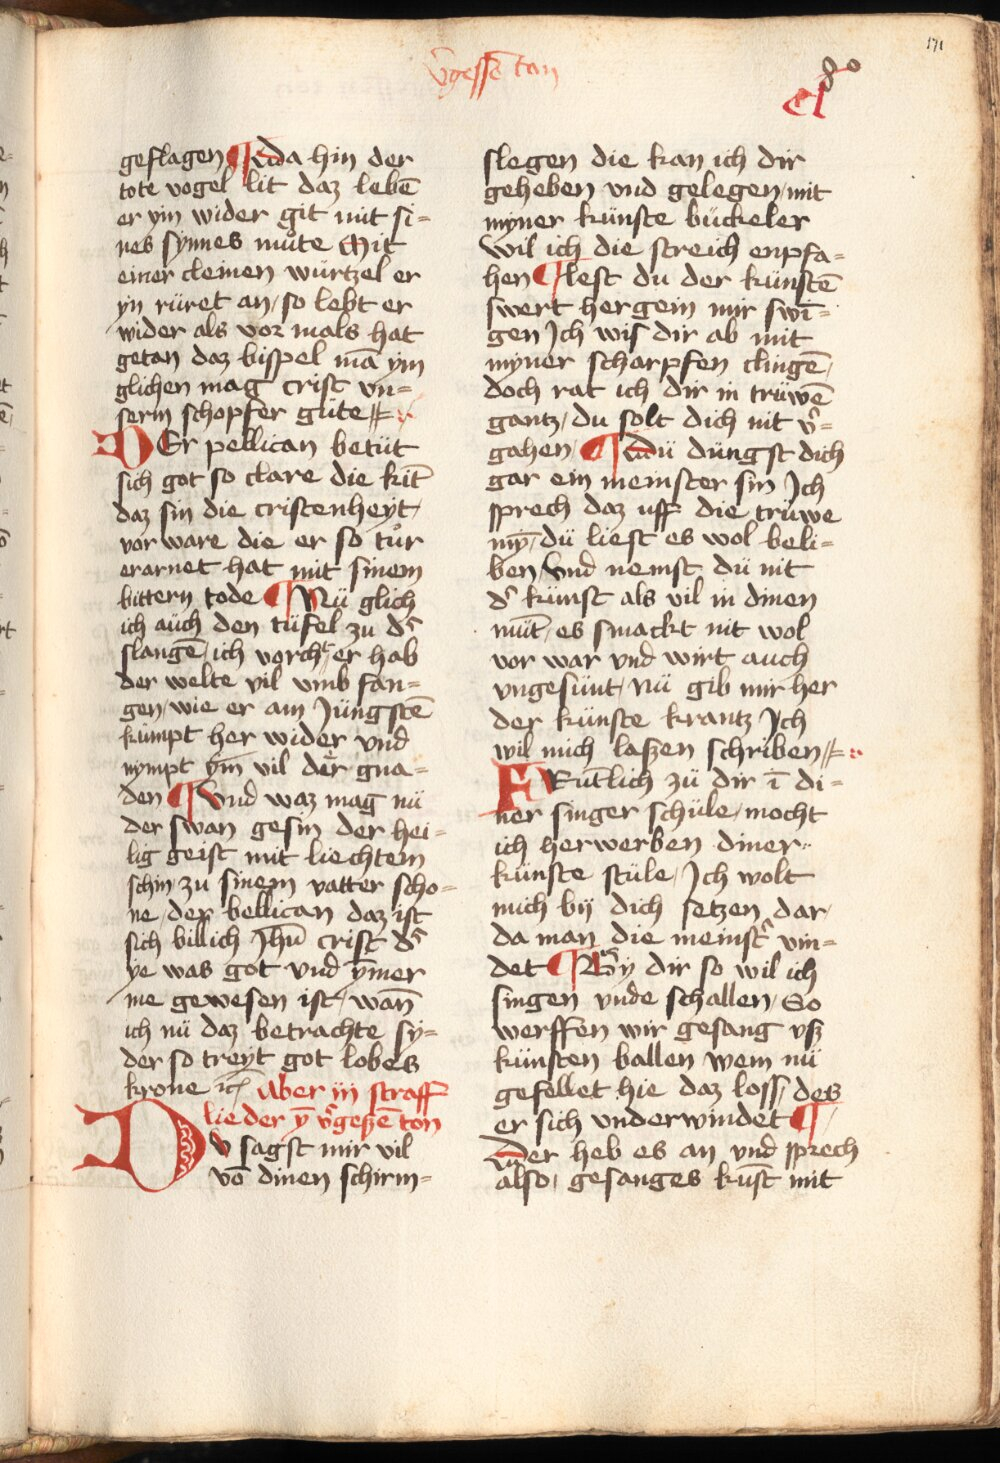 171
v̾gessē tan
cl
80
geslagen ¶ wa hin der
tote vogel lit daz lebē
er ym wider git mit si=
nes synnes mu̇te Mit
einer cleinen würtzel er
yn rüret an / so lebt er
wider als vor mals hat
getan daz bispel mā ym
glichen mag crist vn=
serm schopfer güte
DEr pellican betüt
sich got so clare die kīt
daz sin die cristenheyt /
vor ware die er so tür
erarnet hat mit sinem
bittern tode ¶ Nü glich
ich auch den tüfel zu d̾
slangē / ich vorcht er hab
der welte vil vmb fan=
gen / wie er am Jüngstē
kümpt her wider vnd
nympt ym̄ vil der gna=
den ¶ Vnd waz mag nü
der swan gesin der hei=
lig geist mit liechtem
schin / zu sinem vatter scho=
ne / der bellican daz ist
sich billich Jhū crist d̾
ye was got vnd ym̄er
me gewesen ist / wañ
ich nü daz betrachte sy=
der so treyt got lobes
krone ꝛc aber iij straff
lieder ȳ v̾geszē ton
DV sagst mir vil
vō dinen schirm=
slegen die kan ich dir
geheben vnd gelegen / mit
myner künste bückeler
wil ich die streich enpfa=
hen ¶ lest du der künstē
swert hergein mir swī=
gen Ich wis dir ab mit
myner scharpfen clingē /
doch rat ich dir in trüwē
gantz / du solt dich nit v̾=
gahen / ¶ dü düngst dich
gar ein meinster sin Ich
sprech daz uff die trüwe
mȳ / dü liest es wol beli=
ben / vnd nemst dü nit
d̾ künst als vil in dinen
müt / es smackt nit wol
vor war vnd wirt auch
vngesünt / nü gib mir her
der künste krantz Ich
wil mich laszen schriben
FRütlich zü dir ī di=
ner singer schüle / mocht
ich herwerben diner
künste stüle / Ich wolt
mich bij dich setzen dar /
da man die meinst̾ vin=
det ¶ By dir so wil ich
singen vnde schallen / So
werffen wir gesang vsz
künsten ballen wem nü
gefellet hie daz loss / des
er sich vnderwindet ¶
der heb es an vnd sprech
also / gesanges kūst mit